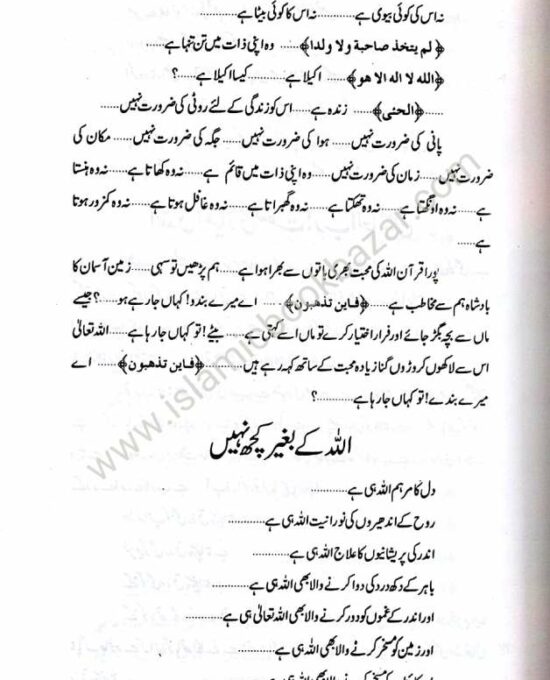 نہ اس کی کوئی بیوی ہے ............ نہ اس کا کوئی بیٹا ہے ............
﴿لم يتخذ صاحبة ولا ولدا﴾ ...... وہ اپنی ذات میں تن تنہا ہے ......
﴿الله لا اله الا هو﴾ ...... اکیلا ہے ......... کیسا اکیلا ہے ......... ؟
...... ﴿الحئی﴾ ...... زندہ ہے ...... اس کو زندگی کے لئے روٹی کی ضرورت نہیں ......
پانی کی ضرورت نہیں ...... ہوا کی ضرورت نہیں ...... جگہ کی ضرورت نہیں ...... مکان کی
ضرورت نہیں ...... زمان کی ضرورت نہیں ...... وہ اپنی ذات میں قائم ہے ...... نہ وہ کھاتا ہے ...... نہ وہ ہنستا
ہے ...... نہ وہ اونگھتا ہے ...... نہ وہ تھکتا ہے ...... نہ وہ گھبراتا ہے ...... نہ وہ غافل ہوتا ہے ...... نہ وہ کمزور ہوتا
ہے ......
پورا قرآن اللہ کی محبت بھری باتوں سے بھرا ہوا ہے ...... ہم پڑھیں تو سہی ...... زمین آسمان کا
بادشاہ ہم سے مخاطب ہے ...... ﴿فاین تذهبون﴾ ...... اے میرے بندو! کہاں جا رہے ہو ...... ؟ جیسے
ماں سے بچہ بگڑ جائے اور فرار اختیار کرے تو ماں اسے کہتی ہے ...... بیٹے! تو کہاں جا رہا ہے ...... اللہ تعالیٰ
اس سے لاکھوں کروڑوں گنا زیادہ محبت کے ساتھ کہہ رہے ہیں ...... ﴿فاین تذهبون﴾ ...... اے
میرے بندے! تو کہاں جا رہا ہے ...... ؟
اللہ کے بغیر کچھ نہیں
دل کا مرہم اللہ ہی ہے ............
روح کے اندھیروں کی نورانیت اللہ ہی ہے ............
اندر کی پریشانیوں کا علاج اللہ ہی ہے ............
باہر کے دکھ درد کی دوا کرنے والا بھی اللہ ہی ہے ............
اور اندر کے غموں کو دور کرنے والا بھی اللہ تعالیٰ ہی ہے ............
اور زمین کو مسخر کرنے والا بھی اللہ ہی ہے ............
www.islamicbookbazar.com